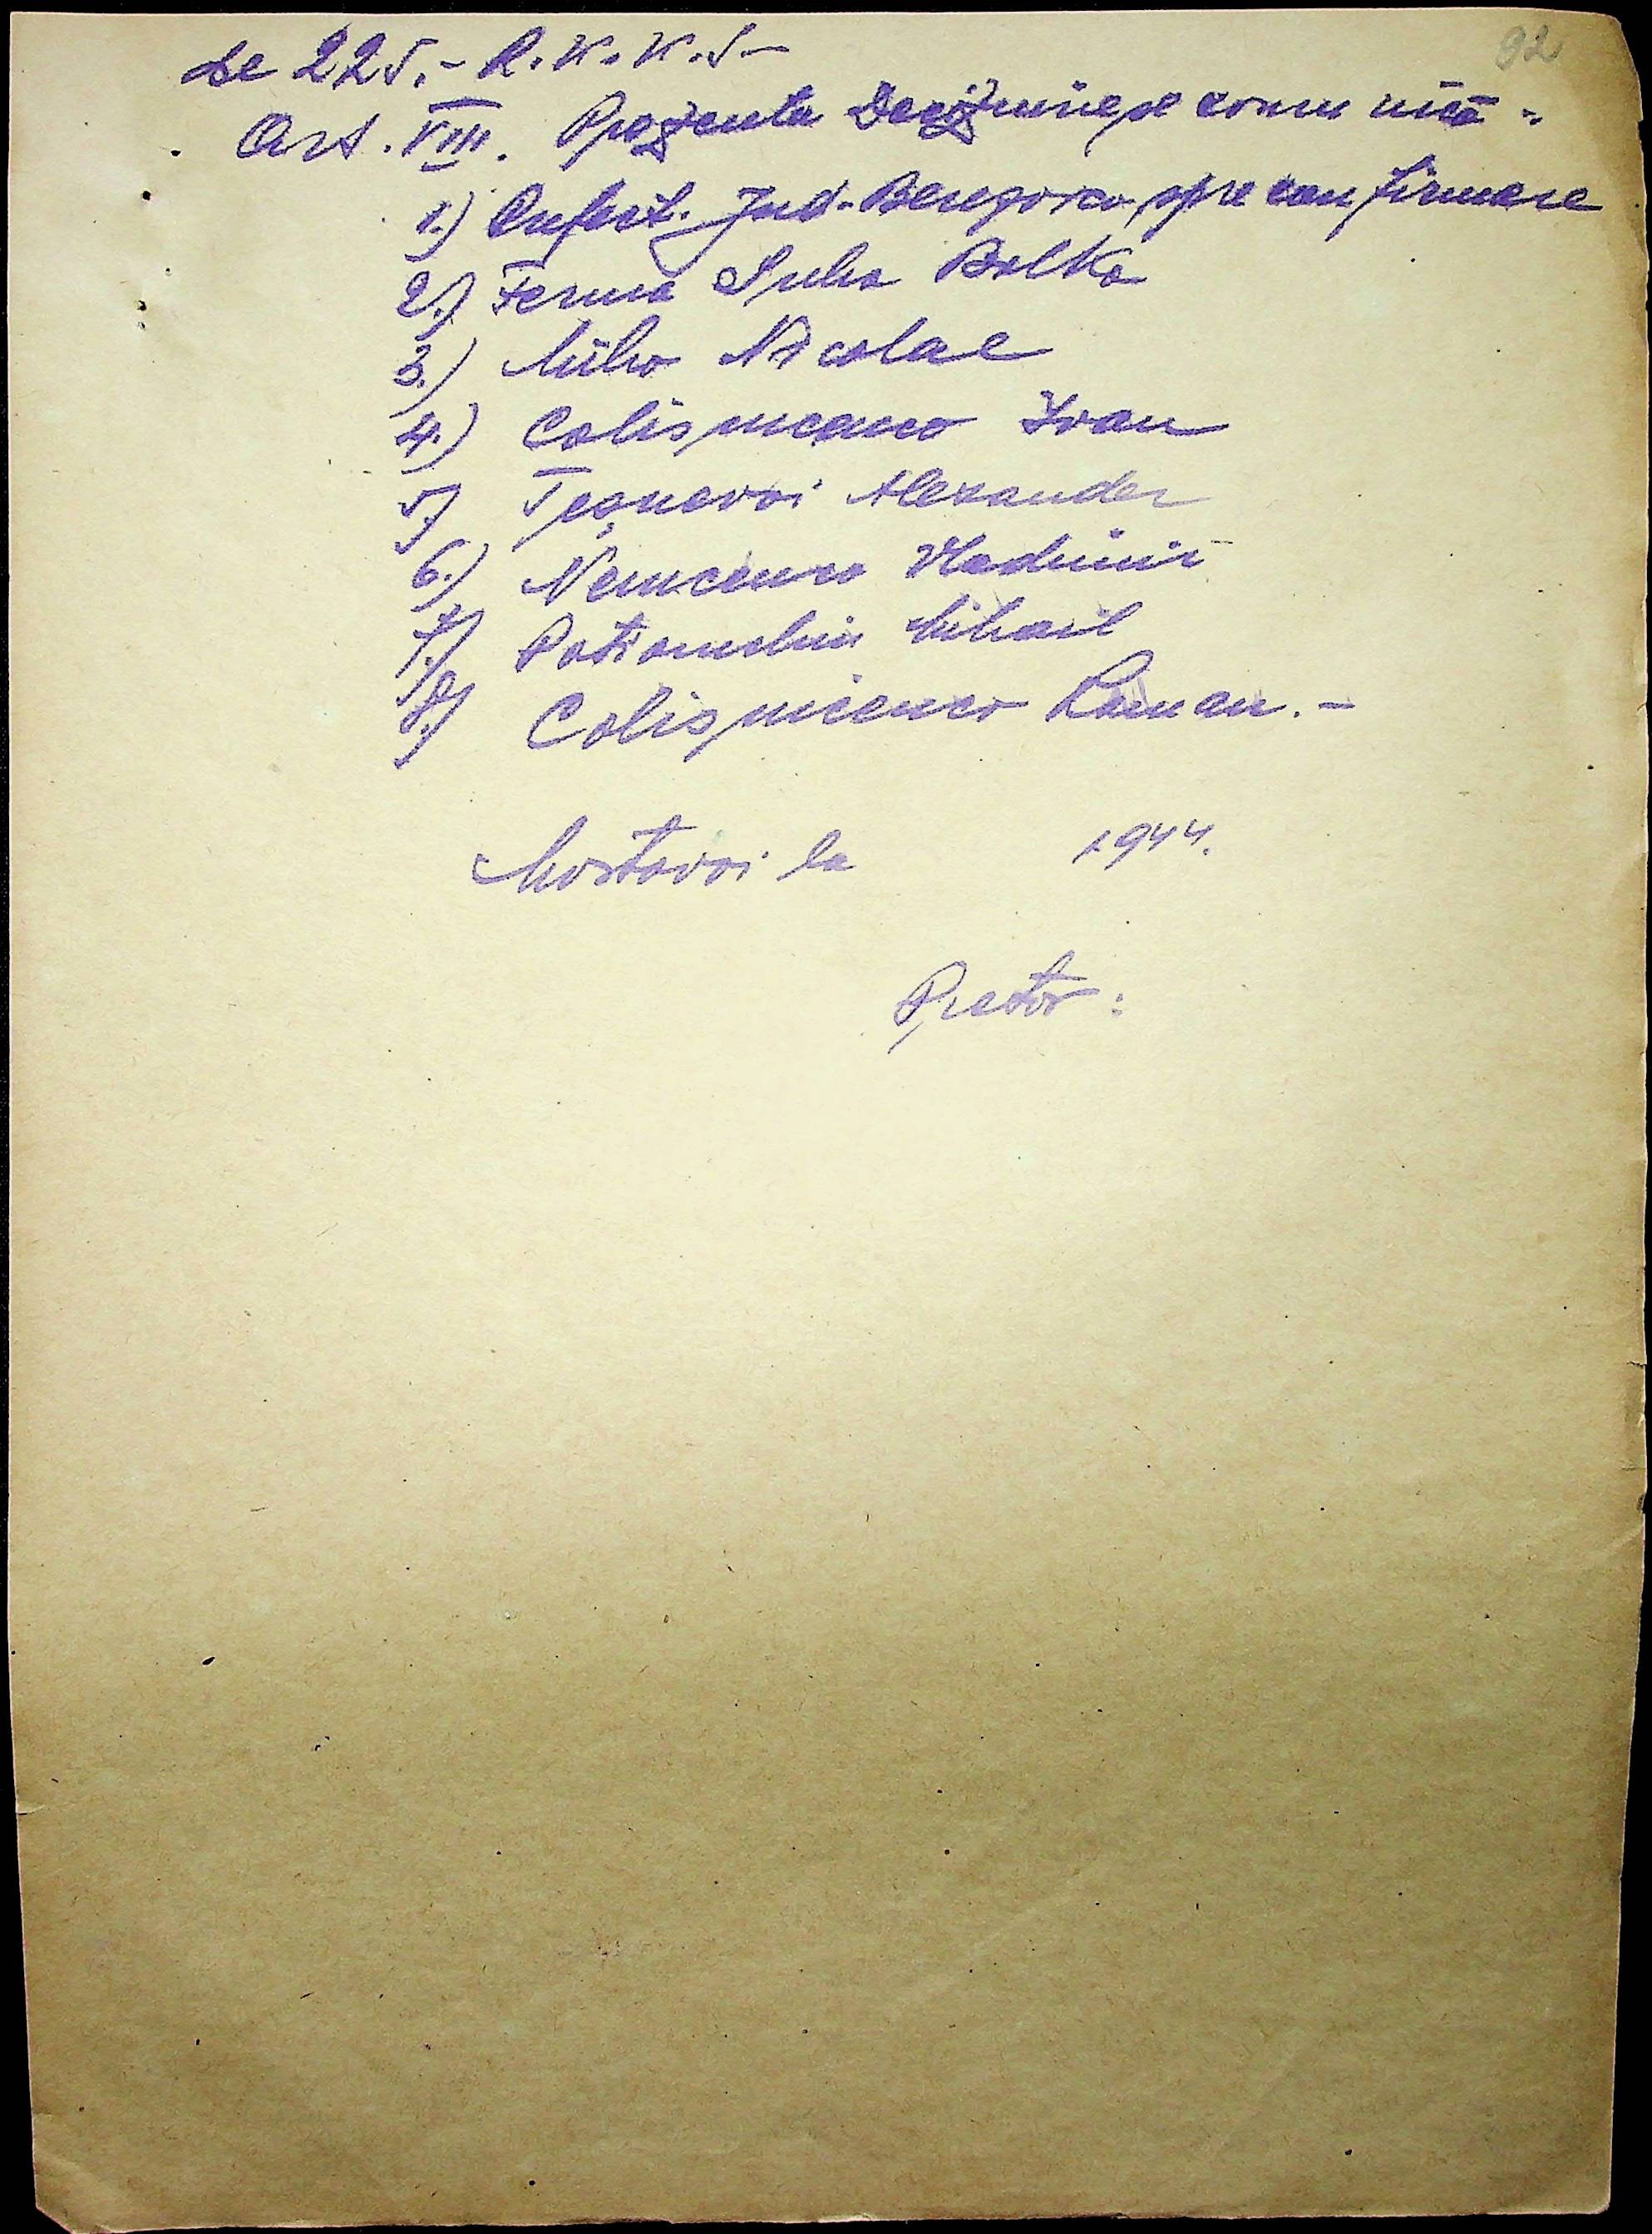 92
de 225.- R.K.K.S-
Art. VIII. Prezenta Deciziune se comunică:
1.) Prefect. Jud. Berezovca, spre confirmare
2.) Ferma Suha Balka
3.) Miho Nicolae
4.) Colisnicenco Ivan
5.) Alexander
6.) Nemcenco Vladimir
7.) Mihail
8.) Colisnicenco Roman.-
Mostovoi la 1944.
Pretor: